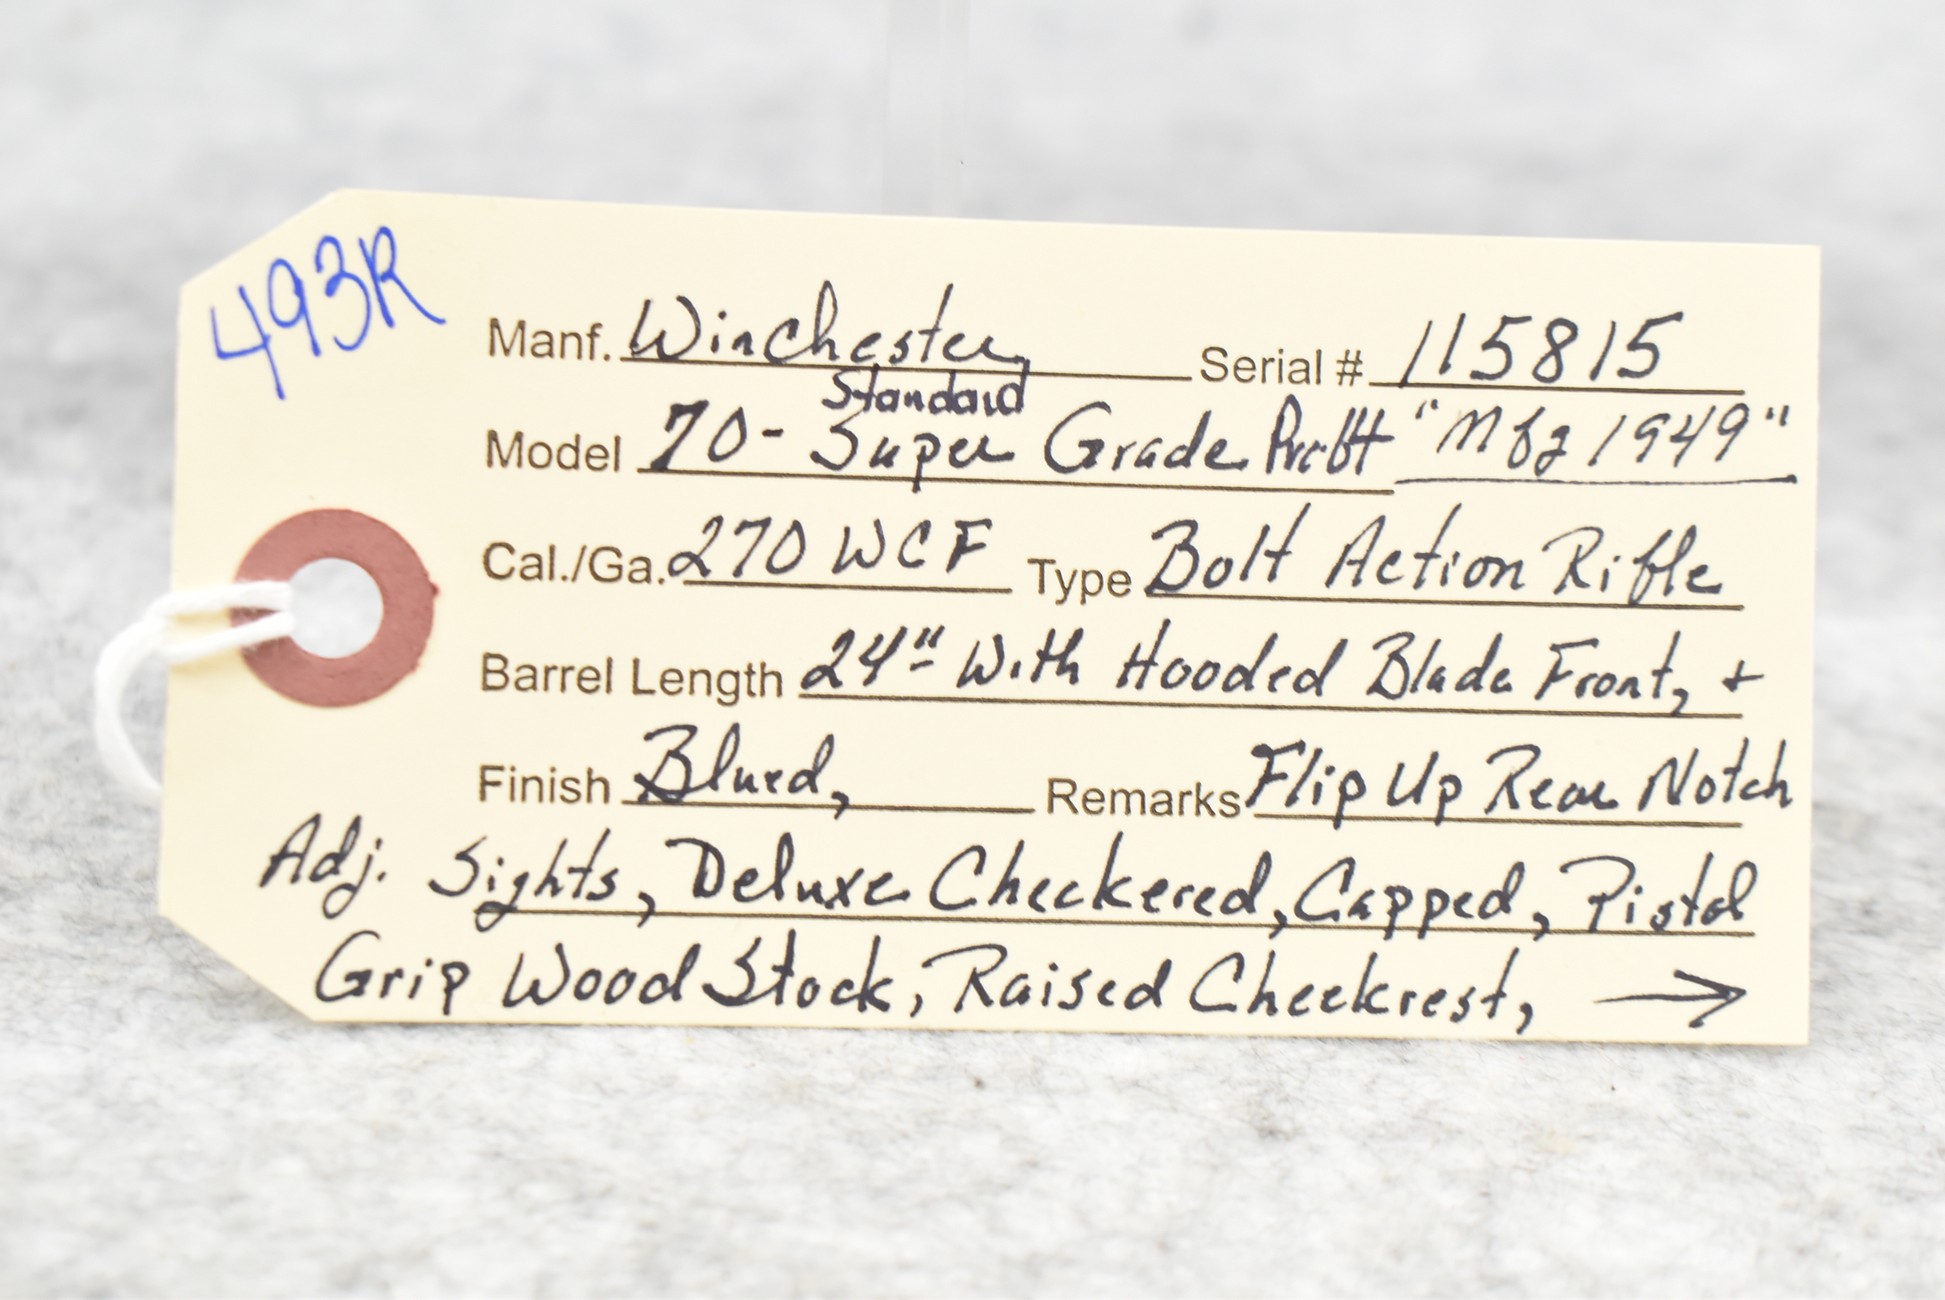 493R
Manf. Winchester, Serial # 115815
Standard
Model 70- Super Grade "Mfg 1949"
Cal./Ga. 270 WCF Type Bolt Action Rifle
Barrel Length 24" With Hooded Blade Front, +
Finish Blued, Remarks Flip Up Rear Notch
Adj. Sights, Deluxe Checkered, Capped, Pistol
Grip Wood Stock, Raised Cheekrest, →